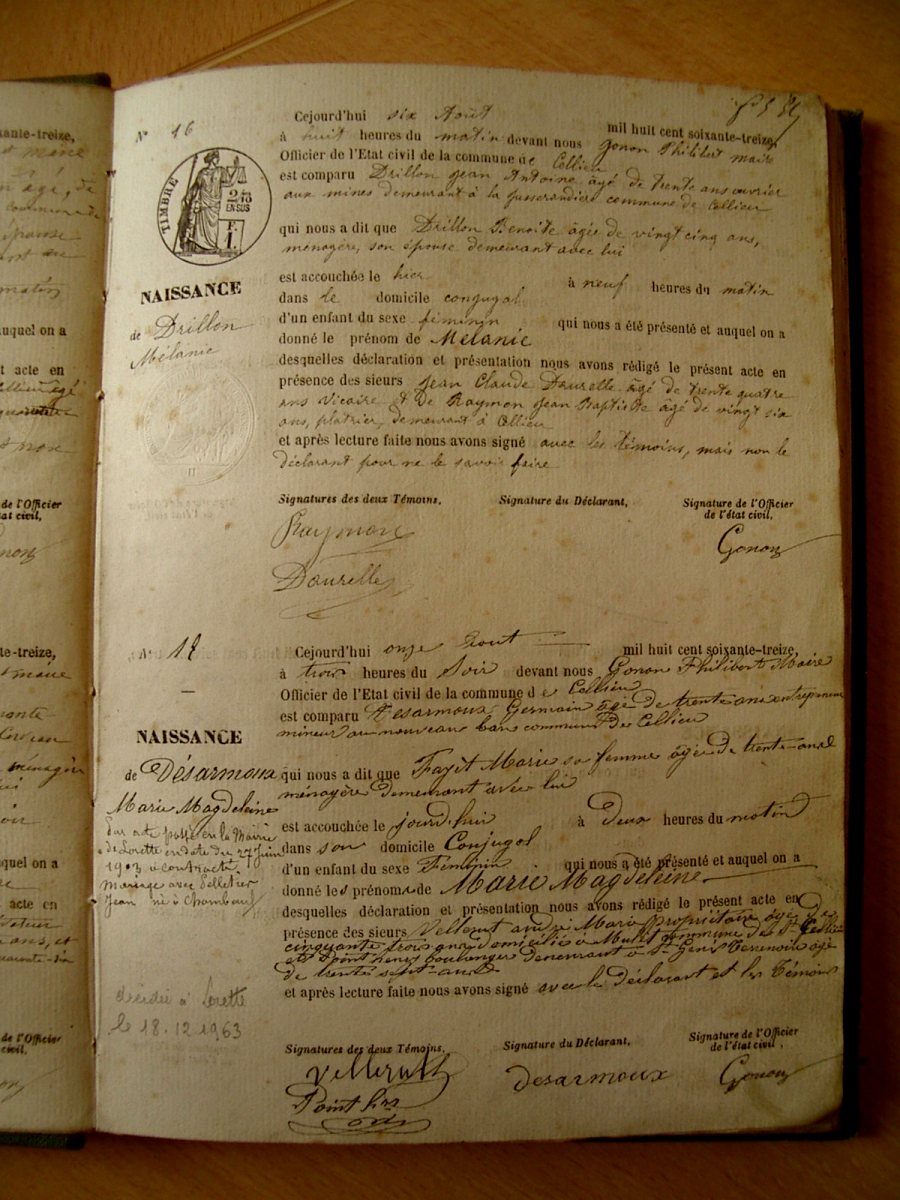 N° 16
Cejourd'hui six Août mil huit cent soixante-treize,
à huit heures du matin devant nous Gonon Philibert maire
Officier de l'Etat civil de la commune de Cellieu
est comparu Drillon Jean Antoine âgé de trente ans ouvrier
aux mines demeurant à la commune de Cellieu
TIMBRE
2/10
EN SUS
F.
1.
qui nous a dit que Drillon Benoite âgée de vingt cinq ans,
menagère, son épouse demeurant avec lui
NAISSANCE
de Drillon
Mélanie
est accouchée le hier à neuf heures du matin
dans le domicile conjugal
d'un enfant du sexe féminin qui nous a été présenté et auquel on a
donné le prénom de Mélanie
desquelles déclaration et présentation nous avons rédigé le présent acte en
présence des sieurs Jean Claude Daurelle âgé de trente quatre
ans Vicaire et de Raymon Jean Baptiste âgé de vingt six
ans, platrier, demeurant à Cellieu
et après lecture faite nous avons signé avec les témoins, mais non le
déclarant pour ne le savoir faire
Signatures des deux Témoins, Signature du Déclarant, Signature de l'Officier
de l'état civil,
Raymon
Gonon
Daurelle
N°
Cejourd'hui onze Août mil huit cent soixante-treize,
à trois heures du Soir devant nous Gonon Philibert Maire
Officier de l'Etat civil de la commune de Cellieu
est comparu Désarmoux Germain âgé de trente ans entrepreneur
mineur au nouveau ban commune de Cellieu
NAISSANCE
de Désarmoux
Marie Magdeleine
Par acte passé en la Mairie
de Lorette en date du 27 Juin
1903 a contracté
mariage avec Pelletier
Jean né à Chambeuf
qui nous a dit que Fayet Marie sa femme âgée de trente ans
ménagère demeurant avec lui
est accouchée le jourd'hui à Deux heures du matin
dans son domicile Conjugal
d'un enfant du sexe Féminin qui nous a été présenté et auquel on a
donné les prénoms de Marie Magdeleine
desquelles déclaration et présentation nous avons rédigé le présent acte en
présence des sieurs Vellerut Marie propriétaire âgé De
cinquante trois ans domicilié à commune de Cellieu
et Point henri boulanger Demeurant à St Genis Terrenoire âgé
de trente sept ans
et après lecture faite nous avons signé avec le Déclarant et les Témoins
décédée à Lorette
le 18.12.1963
Signatures des deux Témoins, Signature du Déclarant, Signature de l'Officier
de l'état civil,
Vellerut
desarmoux
Gonon
Point hri
xante-treize,
auquel on a
t acte en
de l'Officier
tat civil,
te-treize,
quel on a
acte en
de l'Officier
civil,